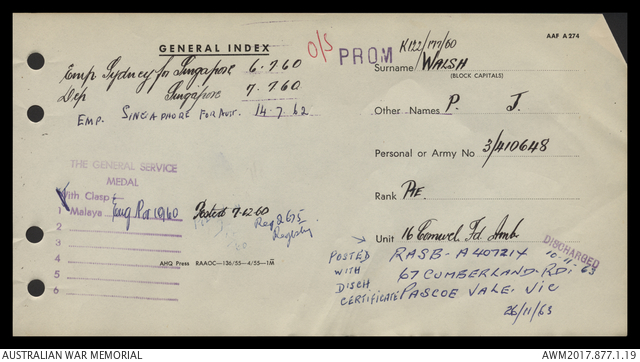 AAF A274
GENERAL INDEX
O/S
PROM
K122/177/60
Surname WALSH
(BLOCK CAPITALS)
Emp Sydney for Singapore 6.7.60
Dep Singapore 7.7.60
EMP. SINGAPORE FOR AUST. 14.7.62
Other Names P. J.
Personal or Army No 3/410648
Rank PTE.
Unit 16 Comwel Fd Amb
THE GENERAL SERVICE
MEDAL
With Clasp:-
1 Malaya Posted 7-12-60
2
3
4
5
6
Reg 2675
Registry
AHQ Press RAAOC—136/55—4/55—1M
POSTED
WITH
DISCH
CERTIFICATE
RASB- A407214
67 CUMBERLAND. RD:
PASCOE VALE. VIC
26/11/63
DISCHARGED
10-11-63
AUSTRALIAN WAR MEMORIAL
AWM2017.877.1.19